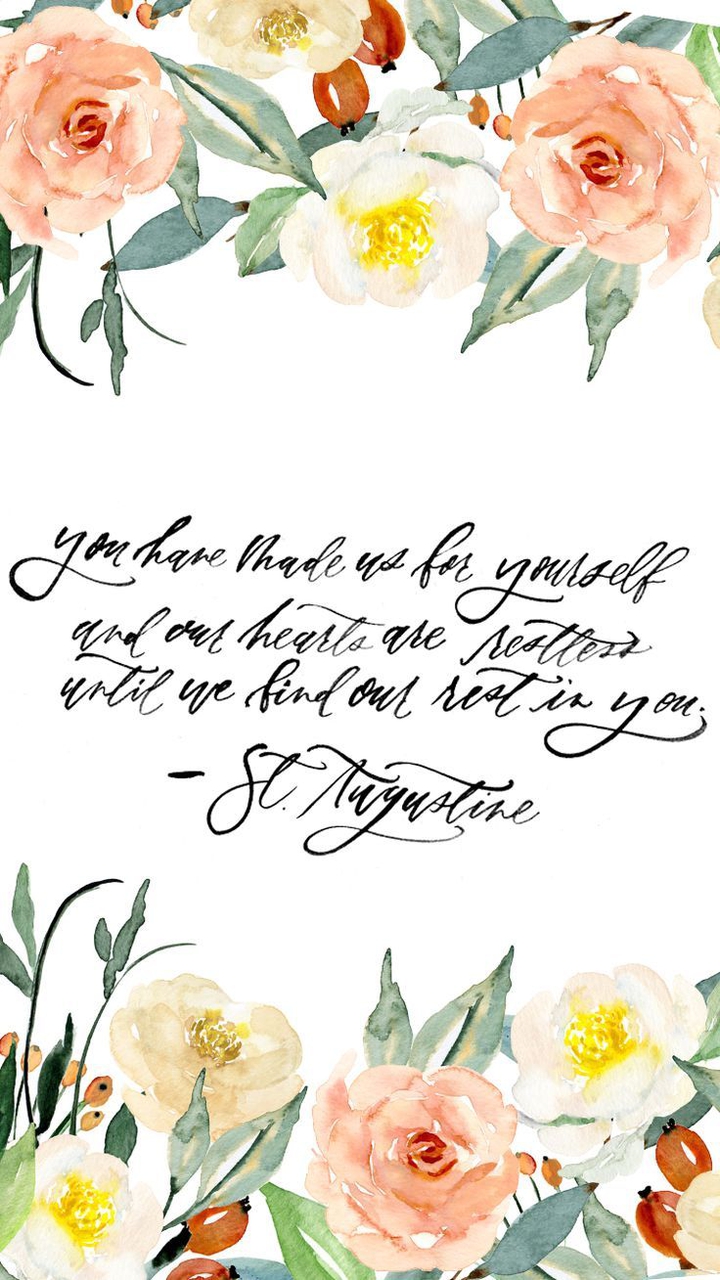 you have made us for yourself
and our hearts are restless
until we find our rest in you.
- St. Augustine